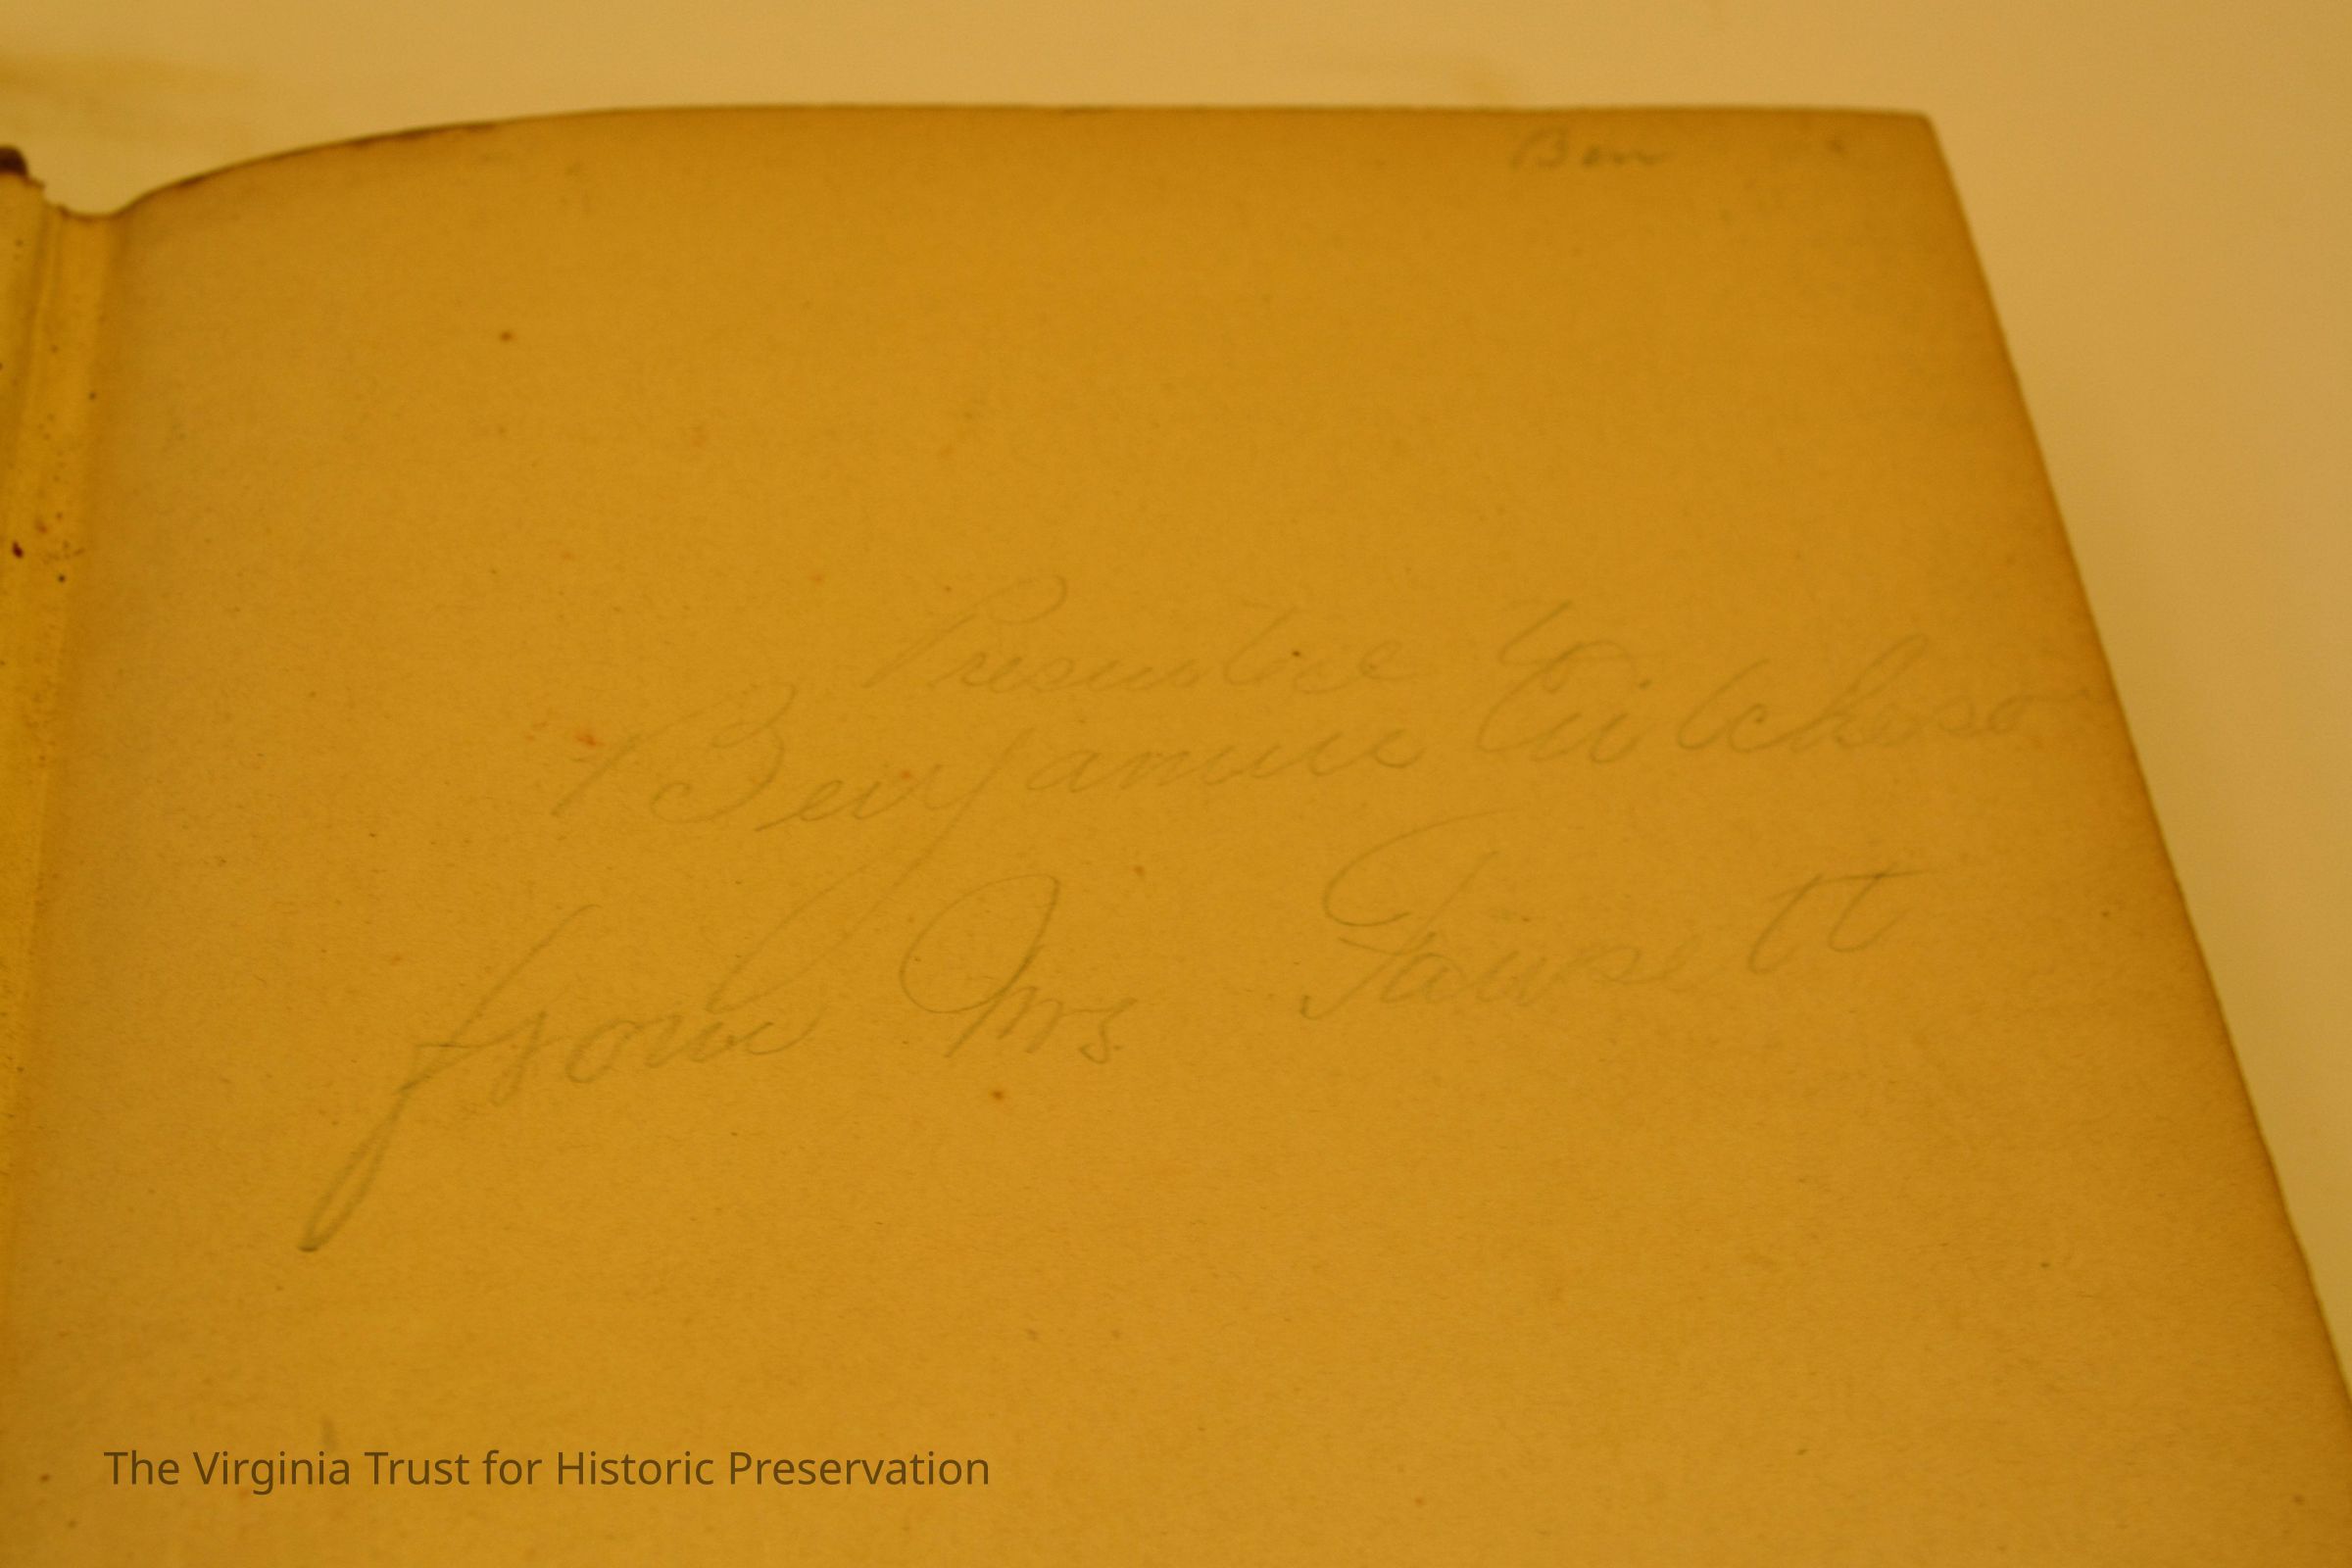 Ben
Presented to
Benjamin
from Mrs Fawsett
The Virginia Trust for Historic Preservation